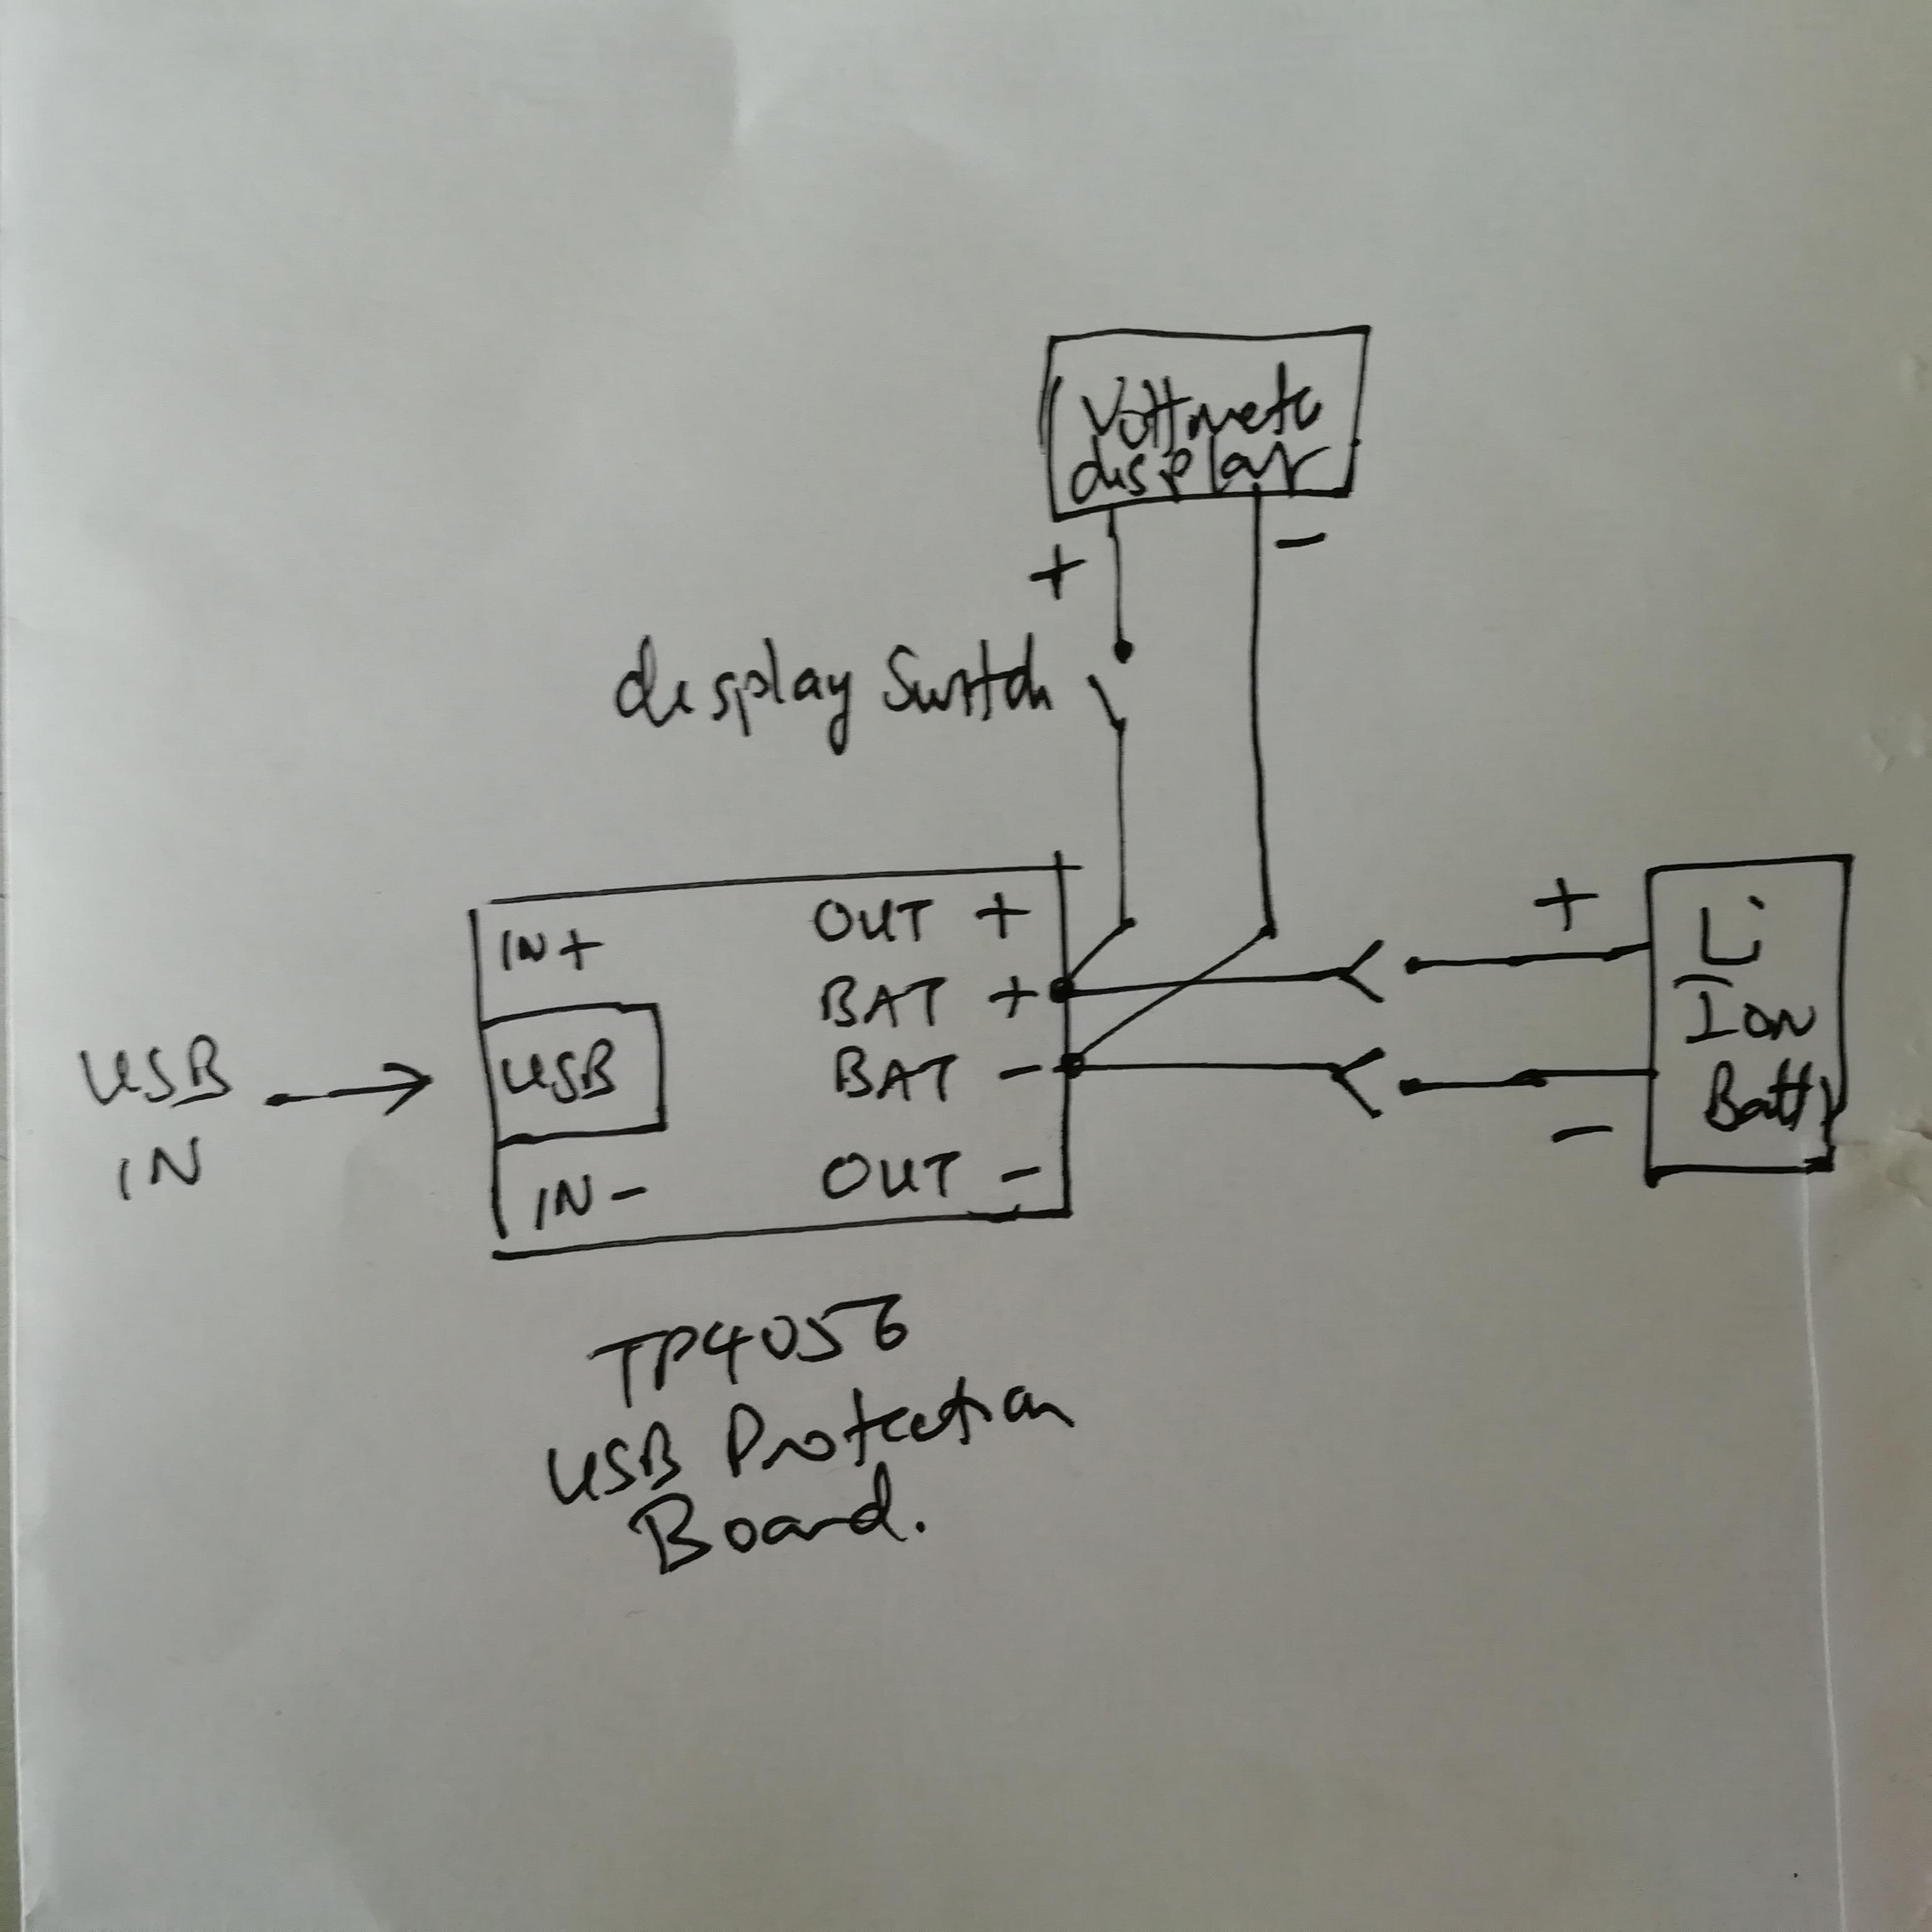 Voltmete
display
+
-
display Switch
OUT +
IN +
BAT +
USB
BAT -
OUT -
IN -
USB
IN
+
Li
Ion
Batty
-
TP4056
USB Protection
Board.